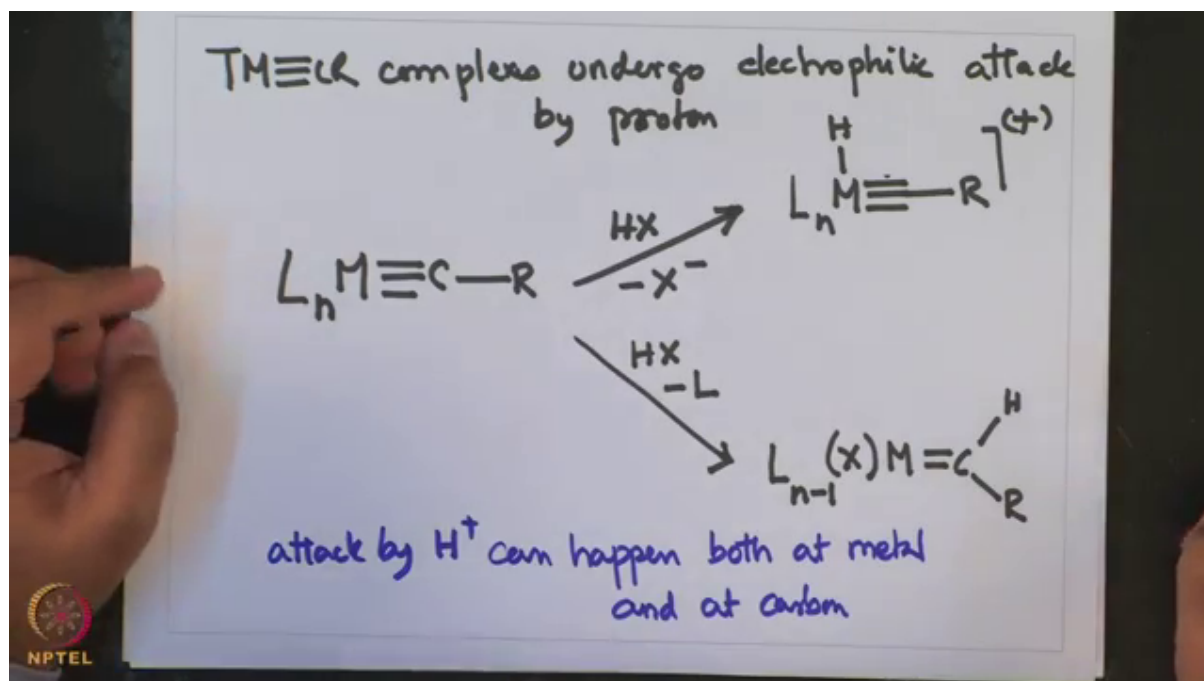 TM≡CR complexes undergo electrophilic attack
by proton
H
LnM≡—R](+)
HX
-X⁻
LnM≡C—R
HX
-L
H
Ln-1(X)M=C
R
attack by H⁺ can happen both at metal
and at carbon
NPTEL